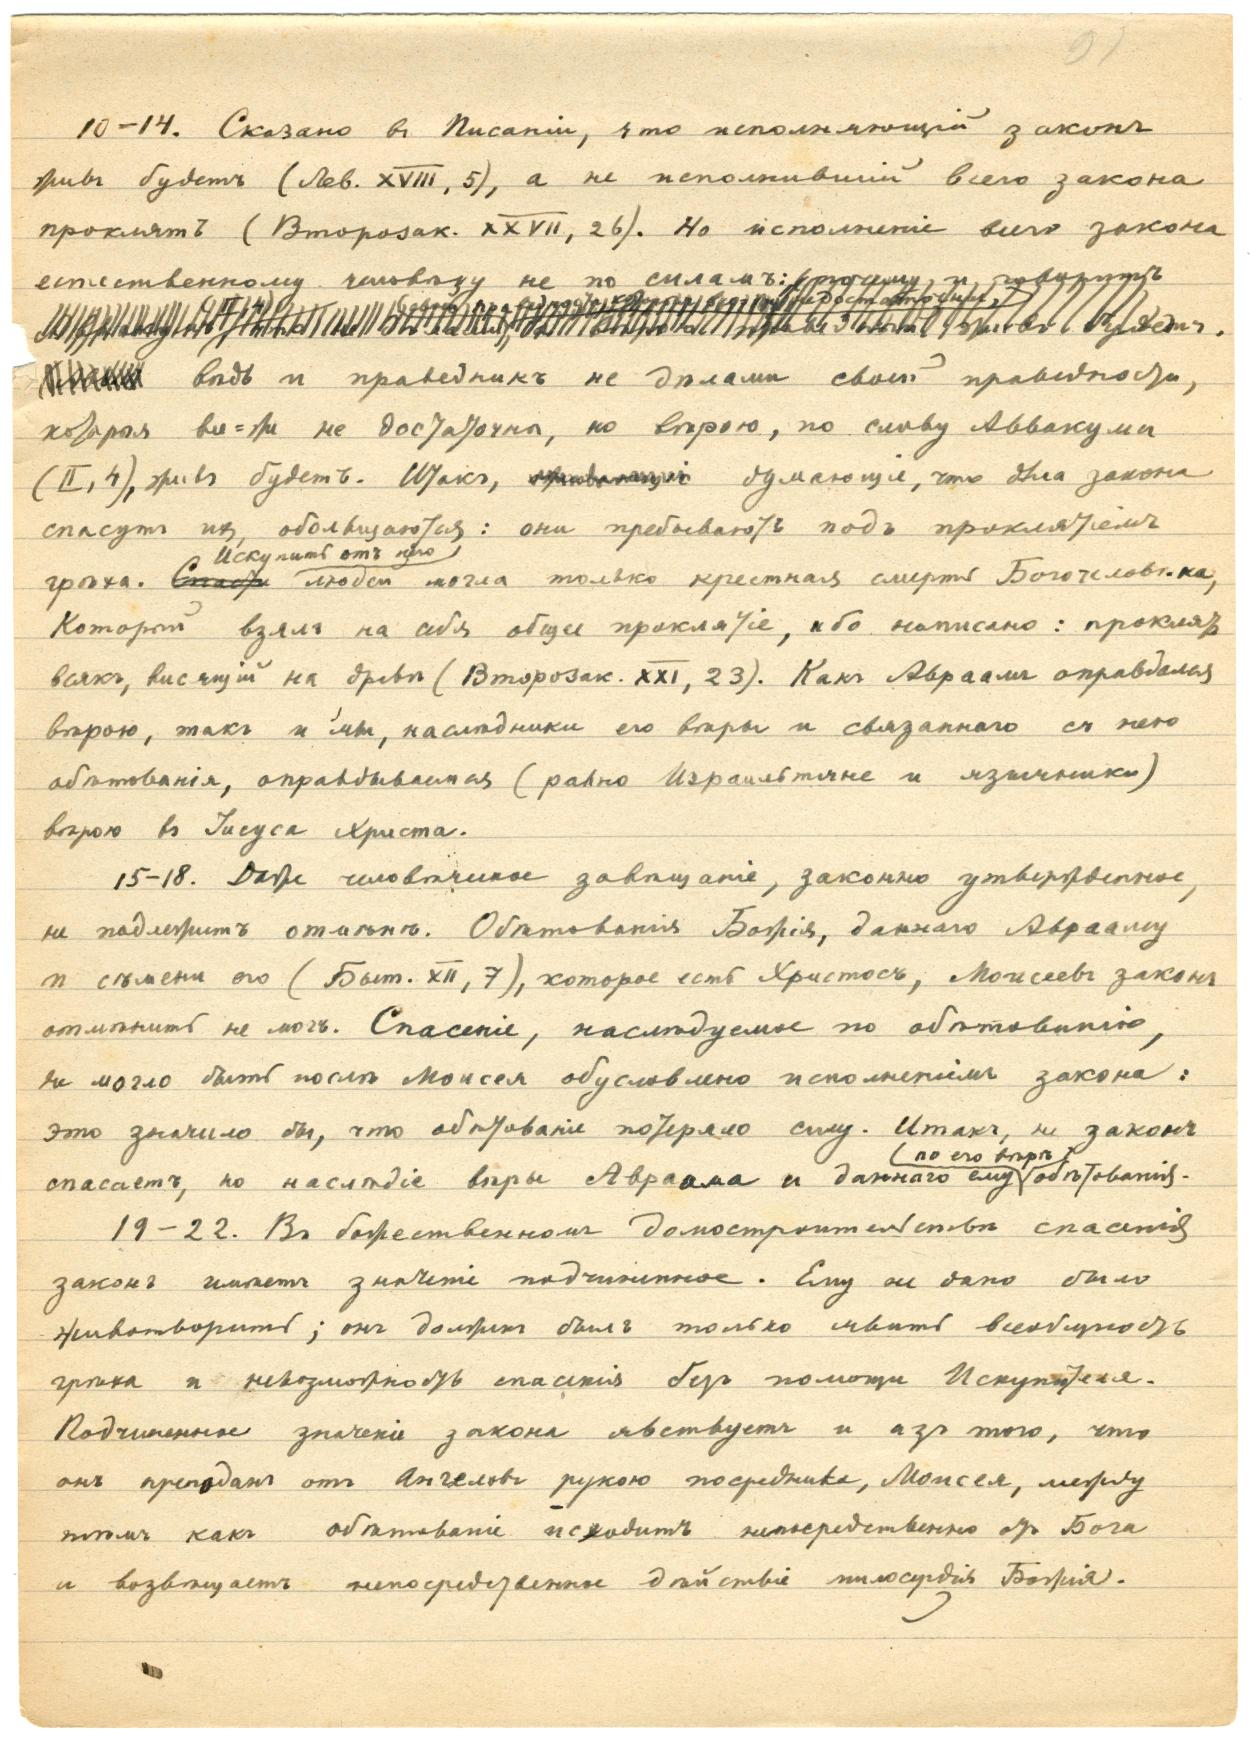 10–14. Сказано въ Писаніи, что исполняющій законъ
живъ будетъ (Лев. XVIII, 5), а не исполнившій всего закона
проклятъ (Второзак. XXVII, 26). Но исполненіе всего закона
естественному человѣку не по силамъ: и говоритъ
будетъ.
вѣдь и праведникъ не дѣлами своей праведности,
которая все=же не достаточна, но вѣрою, по слову Аввакума
(II, 4), живъ будетъ. Итакъ, думающіе, что дѣла закона
спасутъ ихъ, обольщаются: они пребываютъ подъ проклятіемъ
Искупить отъ него
грѣха. Спасти людей могла только крестная смерть Богочеловѣка,
Который взялъ на себя общее проклятіе, ибо написано: проклятъ
всякъ, висящій на древѣ (Второзак. XXI, 23). Какъ Авраамъ оправдался
вѣрою, такъ и мы, наслѣдники его вѣры и связаннаго съ нею
обѣтованія, оправдываемся (равно Израильтяне и язычники)
вѣрою въ Іисуса Христа.
15–18. Даже человѣческое завѣщаніе, законно утвержденное,
не подлежитъ отмѣнѣ. Обѣтованія Божія, даннаго Аврааму
и сѣмени его (Быт. XII, 7), которое есть Христосъ, Моисеевъ законъ
отмѣнить не могъ. Спасеніе, наслѣдуемое по обѣтованію,
не могло быть послѣ Моисея обусловлено исполненіемъ закона:
это значило бы, что обѣтованіе потеряло силу. Итакъ, не законъ
(по его вѣрѣ)
спасаетъ, но наслѣдіе вѣры Авраама и даннаго ему обѣтованія.
19–22. Въ божественномъ домостроительствѣ спасенія
законъ имѣетъ значеніе подчиненное. Ему не дано было
животворить; онъ долженъ былъ только явить всеобщность
грѣха и невозможность спасенія безъ помощи Искупителя.
Подчиненное значеніе закона явствуетъ и изъ того, что
онъ преподанъ отъ Ангеловъ рукою посредника, Моисея, между
тѣмъ какъ обѣтованіе исходитъ непосредственно отъ Бога
и возвѣщаетъ непосредственное дѣйствіе милосердія Божія.